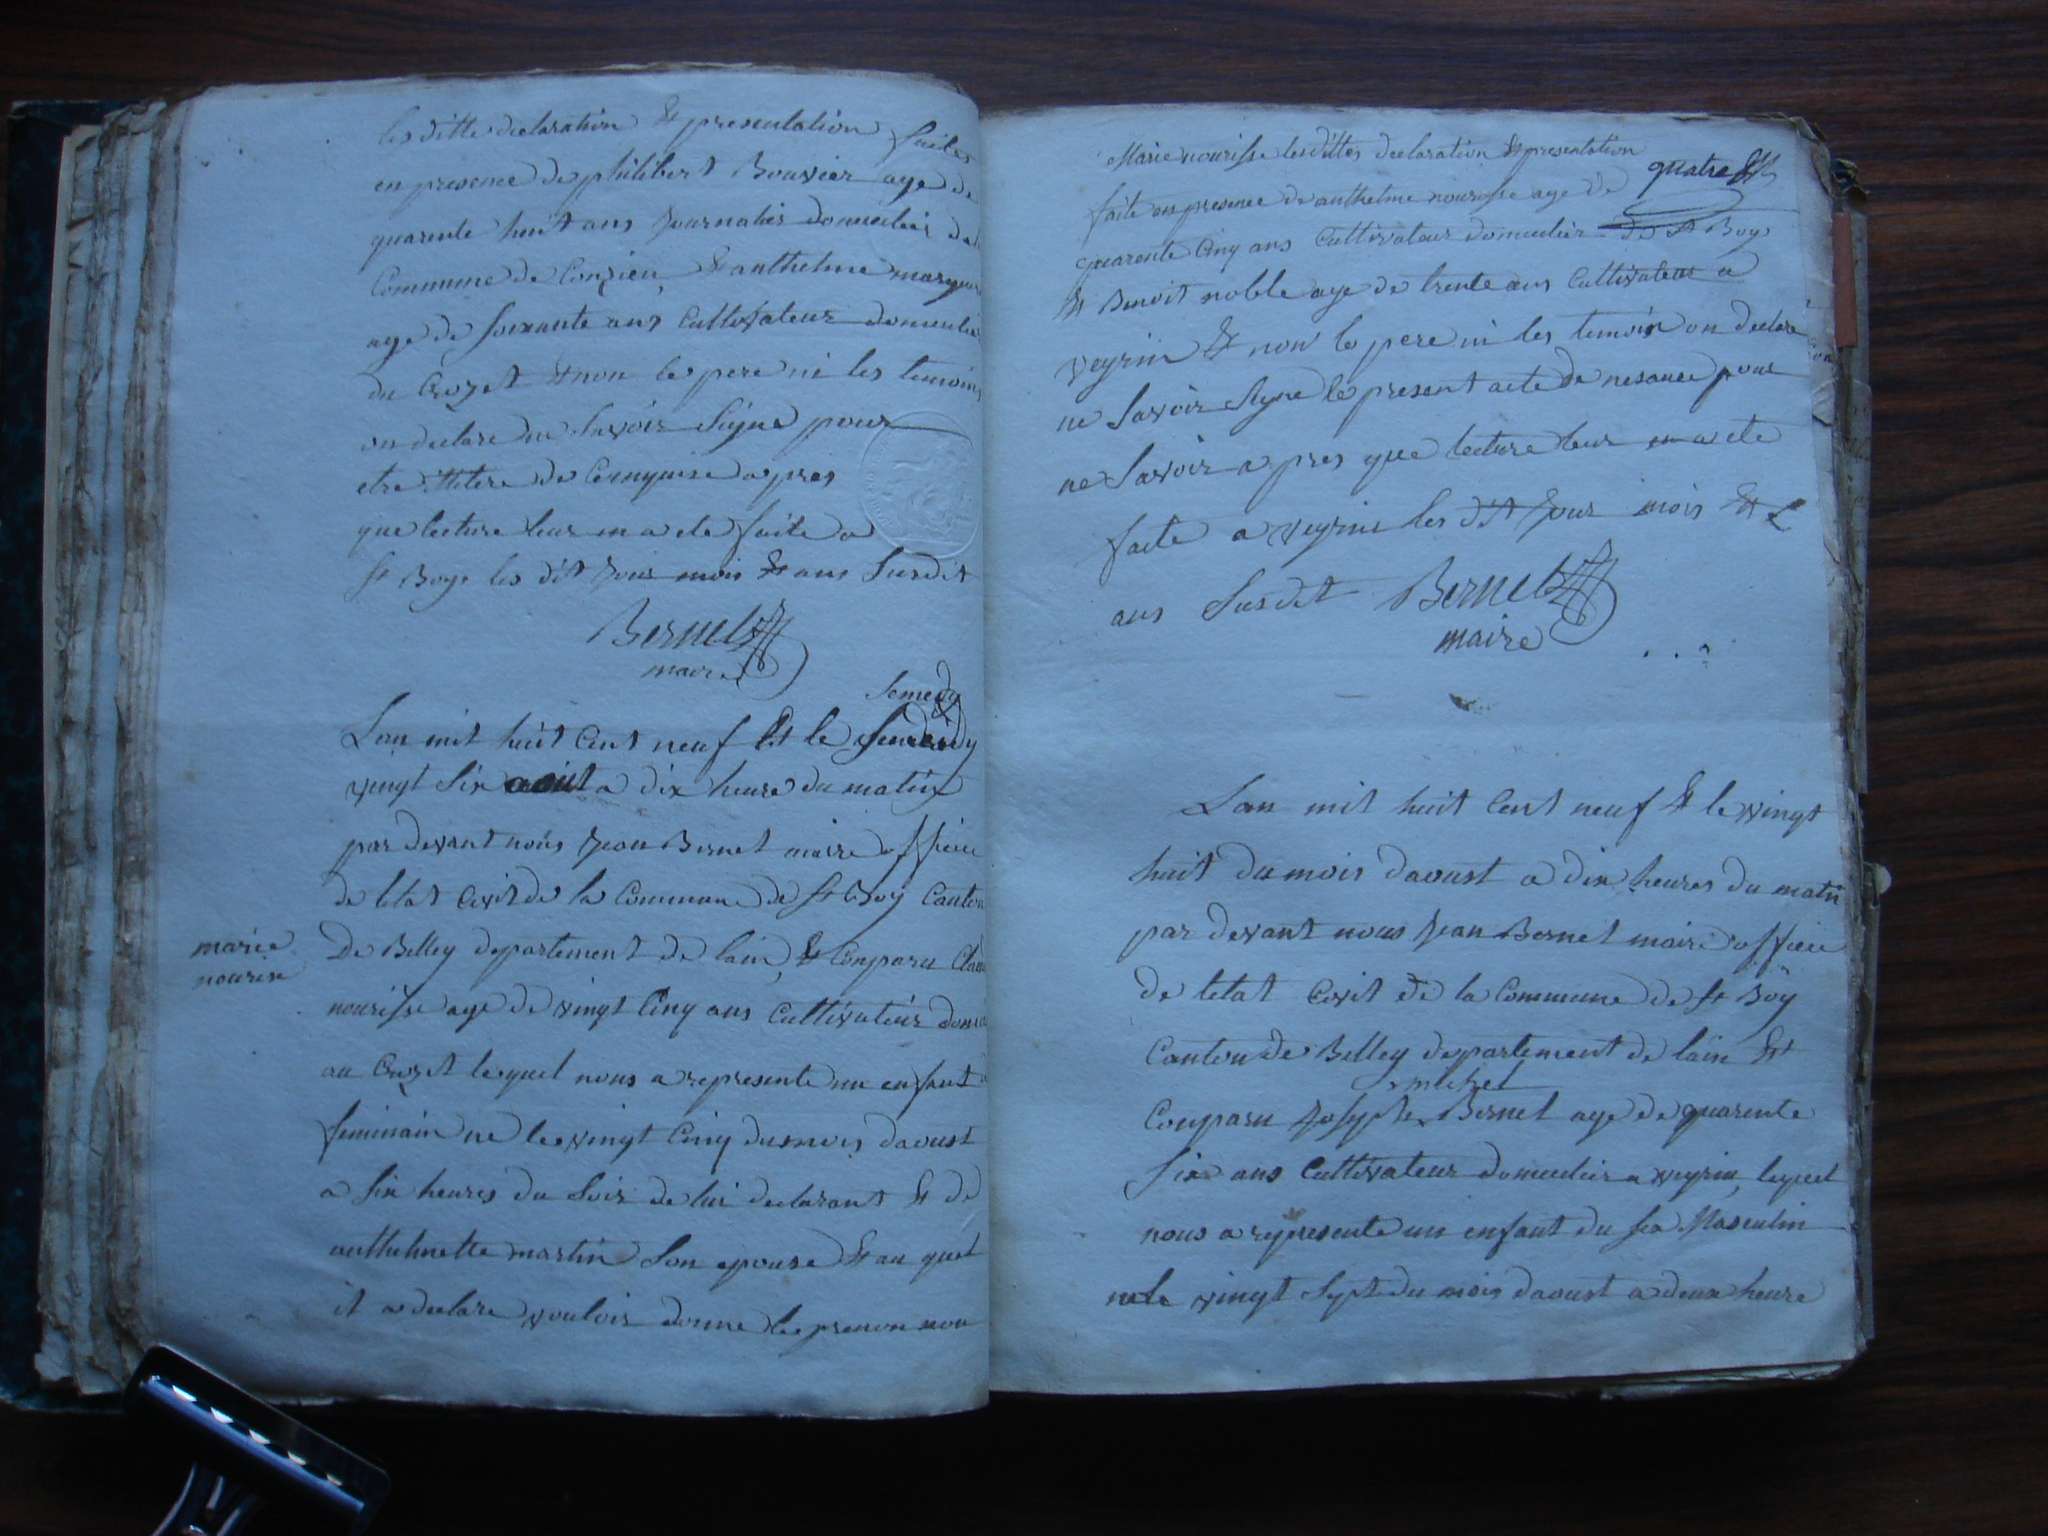 les ditte declaration et presentation faites
en presence de philibert Bouvier age de
quarente huit ans Journalier domicilies de la
Commune de Conzieu et anthelme marques
age de soixante ans Cultivateur domicilie
du Crozet et non le pere ni les temoins
on declare ne Savoir Signe pour
etre de
que lecture leur en a ete faite a
St Boys les dit Jour mois et ans Susdit
Bernet
maire
Semedy
Lan mil huit Cent neuf et le
vingt Six aout a dix heure du matin
par devant nous Jean Bernet maire officie
de letat Civil de la Commune de St Boy Canton
De Belley departement de lain, et Comparu Claude
marie
nourise
nourisse age de vingt Cinq ans Cultivateur domi
au Crozet lequel nous a represente un enfant
feminain ne le vingt Cinq du mois daoust
a six heures du Soir de lui declarant et de
anthelmette martin Son epouse et au quel
il a declare vouloir donne le prenon non
Marie nourisse les dittes declaration et presentation
faite en presence de anthelme nourisse age de quatre
quarente Cinq ans Cultivateur domicilier de St Boys
et Benoit noble age de trente ans Cultivateur a
veyrin et non le pere ni les temoins on declare
ne Savoir Signe le present acte de nesance pour
ne Savoir a pres que lecture leur en a ete
faite a veyrin les dit Jour mois et
ans Susdit Bernet
maire
Lan mil huit Cent neuf et le vingt
huit du mois daoust a dix heures du matin
par devant nous Jean Bernet maire officie
de letat Civil de la Commune de St Boy
Canton de Belley departement de lain et
michel
Comparu Joseph Bernet age de quarente
Six ans Cultivateur domicilier a veyrin, lequel
nous a represente un enfant du sex Masculin
ne le vingt Sept du mois daoust a deux heure